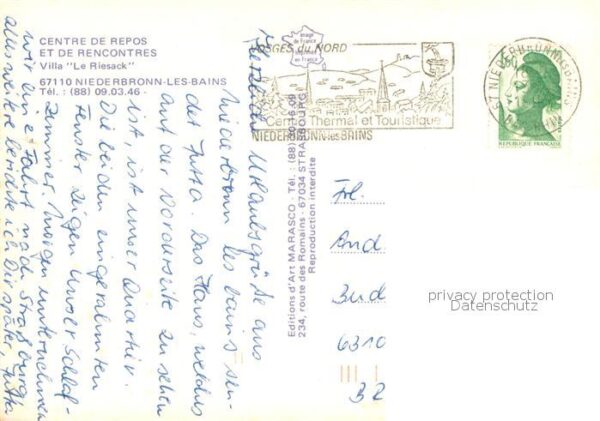 CENTRE DE REPOS
ET DE RENCONTRES
Villa "Le Riesack"
67110 NIEDERBRONN-LES-BAINS
Tél. : (88) 09.03.46 -
image
de France
VOSGES DU NORD
Centre Thermal et Touristique
NIEDERBRONN-les-BAINS
NIEDERBRONN
REPUBLIQUE FRANÇAISE
Herzliche Urlaubsgrüße aus
Niederbronn les bains sen-
det Jutta. Das Haus, welches
auf der Vorderseite zu sehen
ist, ist unser Quartier.
Die beiden eingerahmten
Fenster zeigen unser Schlaf-
zimmer. Morgen unternehmen
wir eine Fahrt nach Straßburg
alles weitere berichte ich Dir später, Jutta
Editions d'Art MARASCO - Tél. : (88)
234, route des Romains - 67034 STRASBOURG
Reproduction interdite
Frl.
And
Bud
6310
BZ
privacy protection
Datenschutz